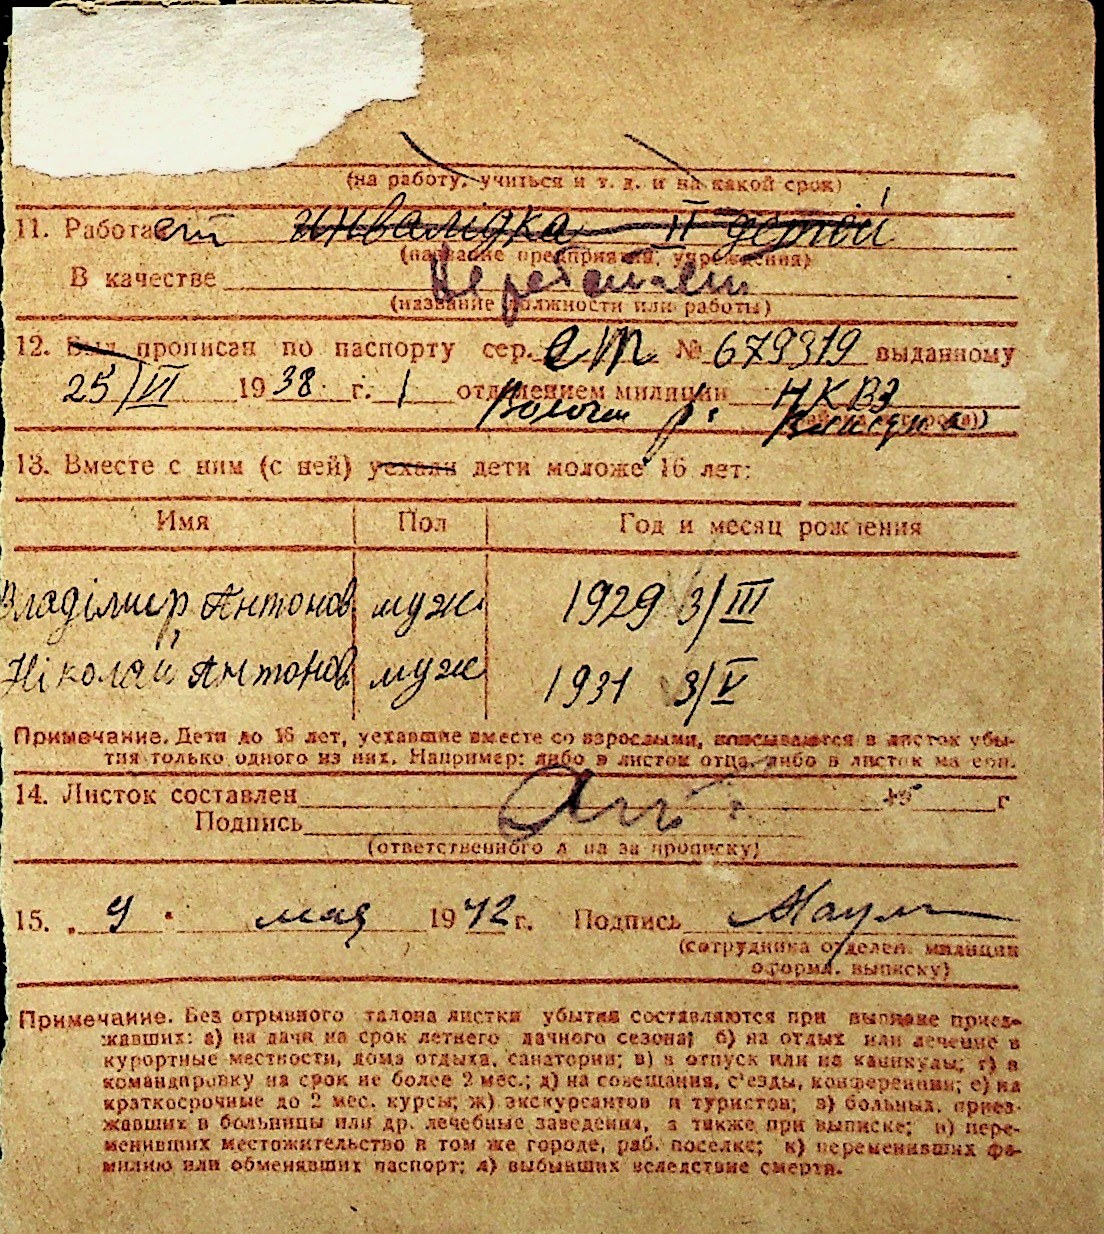 (на работу, учиться и т. д. и на какой срок)
11. Работает инвалідка II детей
(название предприятия, учреждения)
В качестве
(название должности или работы)
12. Был прописан по паспорту сер. № 679319 выданному
25/VI 1938 г. 1 отделением милиции НКВД
13. Вместе с ним (с ней) уехали дети моложе 16 лет:
Имя Пол Год и месяц рождения
Владімир Антонов муж. 1929 3/III
Ніколай Антонов муж 1931 3/V
Примечание. Дети до 16 лет, уехавшие вместе со взрослыми, вписываются в листок убы-
тия только одного из них. Например: либо в листок отца, либо в листок матери.
14. Листок составлен г
Подпись
(ответственного лица за прописку)
15. „9" мая 1942 г. Подпись
(сотрудника отделен. милиции
оформл. выписку)
Примечание. Без отрывного талона листки убытия составляются при выписке приез-
жавших: а) на дачи на срок летнего дачного сезона; б) на отдых или лечение в
курортные местности, дома отдыха, санатории; в) в отпуск или на каникулы; г) в
командировку на срок не более 2 мес.; д) на совещания, с'езды, конференции; е) на
краткосрочные до 2 мес. курсы; ж) экскурсантов и туристов; з) больных, приез-
жавших в больницы или др. лечебные заведения, а также при выписке; и) пере-
менивших местожительство в том же городе, раб. поселке; к) переменивших фа-
милию или обменявших паспорт; л) выбывших вследствие смерти.